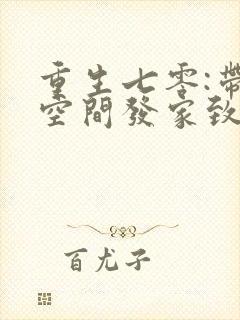 重生七零:帶
空間發家致
百尤子